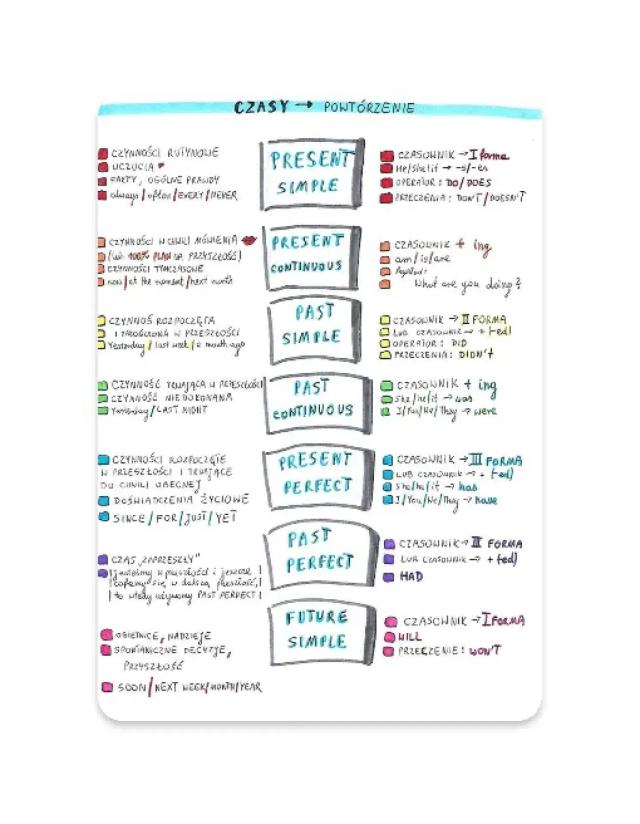 CZASY → POWTÓRZENIE
CZYNNOŚCI RUTYNOWE
UCZUCIA
FAKTY, OGÓLNE PRAWDY
always/often/EVERY/NEVER
PRESENT
SIMPLE
CZASOWNIK → I forma
He/She/it → -s/-es
OPERATOR: DO/DOES
PRZECZENIA: DON'T/DOESN'T
CZYNNOŚCI W CHWILI MÓWIENIA
(lub 100% PLAN NA PRZYSZŁOŚĆ)
CZYNNOŚCI TYMCZASOWE
now/at the moment/next month
PRESENT
CONTINUOUS
CZASOWNIK + ing
am/is/are
What are you doing?
CZYNNOŚĆ ROZPOCZĘTA
I ZAKOŃCZONA W PRZESZŁOŚCI
Yesterday/last week/a month ago
PAST
SIMPLE
CZASOWNIK → II FORMA
LUB CZASOWNIK → + (ed)
OPERATOR: DID
PRZECZENIA: DIDN'T
CZYNNOŚĆ TRWAJĄCA W PRZESZŁOŚCI
CZYNNOŚĆ NIEDOKONANA
Yesterday/LAST NIGHT
PAST
CONTINUOUS
CZASOWNIK + ing
She/he/it → was
I/You/We/They → were
CZYNNOŚCI ROZPOCZĘTE
W PRZESZŁOŚCI I TRWAJĄCE
DO CHWILI OBECNEJ
DOŚWIADCZENIA ŻYCIOWE
SINCE/FOR/JUST/YET
PRESENT
PERFECT
CZASOWNIK → III FORMA
LUB CZASOWNIK → + (ed)
She/he/it → has
I/You/We/They → have
CZAS „ZAPRZESZŁY"
jesteśmy w przeszłości i jeszcze
cofamy się w dalszą przeszłość,
to wtedy używamy PAST PERFECT!
PAST
PERFECT
CZASOWNIK → III FORMA
LUB CZASOWNIK → + (ed)
HAD
OBIETNICE, NADZIEJE
SPONTANICZNE DECYZJE,
PRZYSZŁOŚĆ
SOON/NEXT WEEK/MONTH/YEAR
FUTURE
SIMPLE
CZASOWNIK → I FORMA
WILL
PRZECZENIE: WON'T